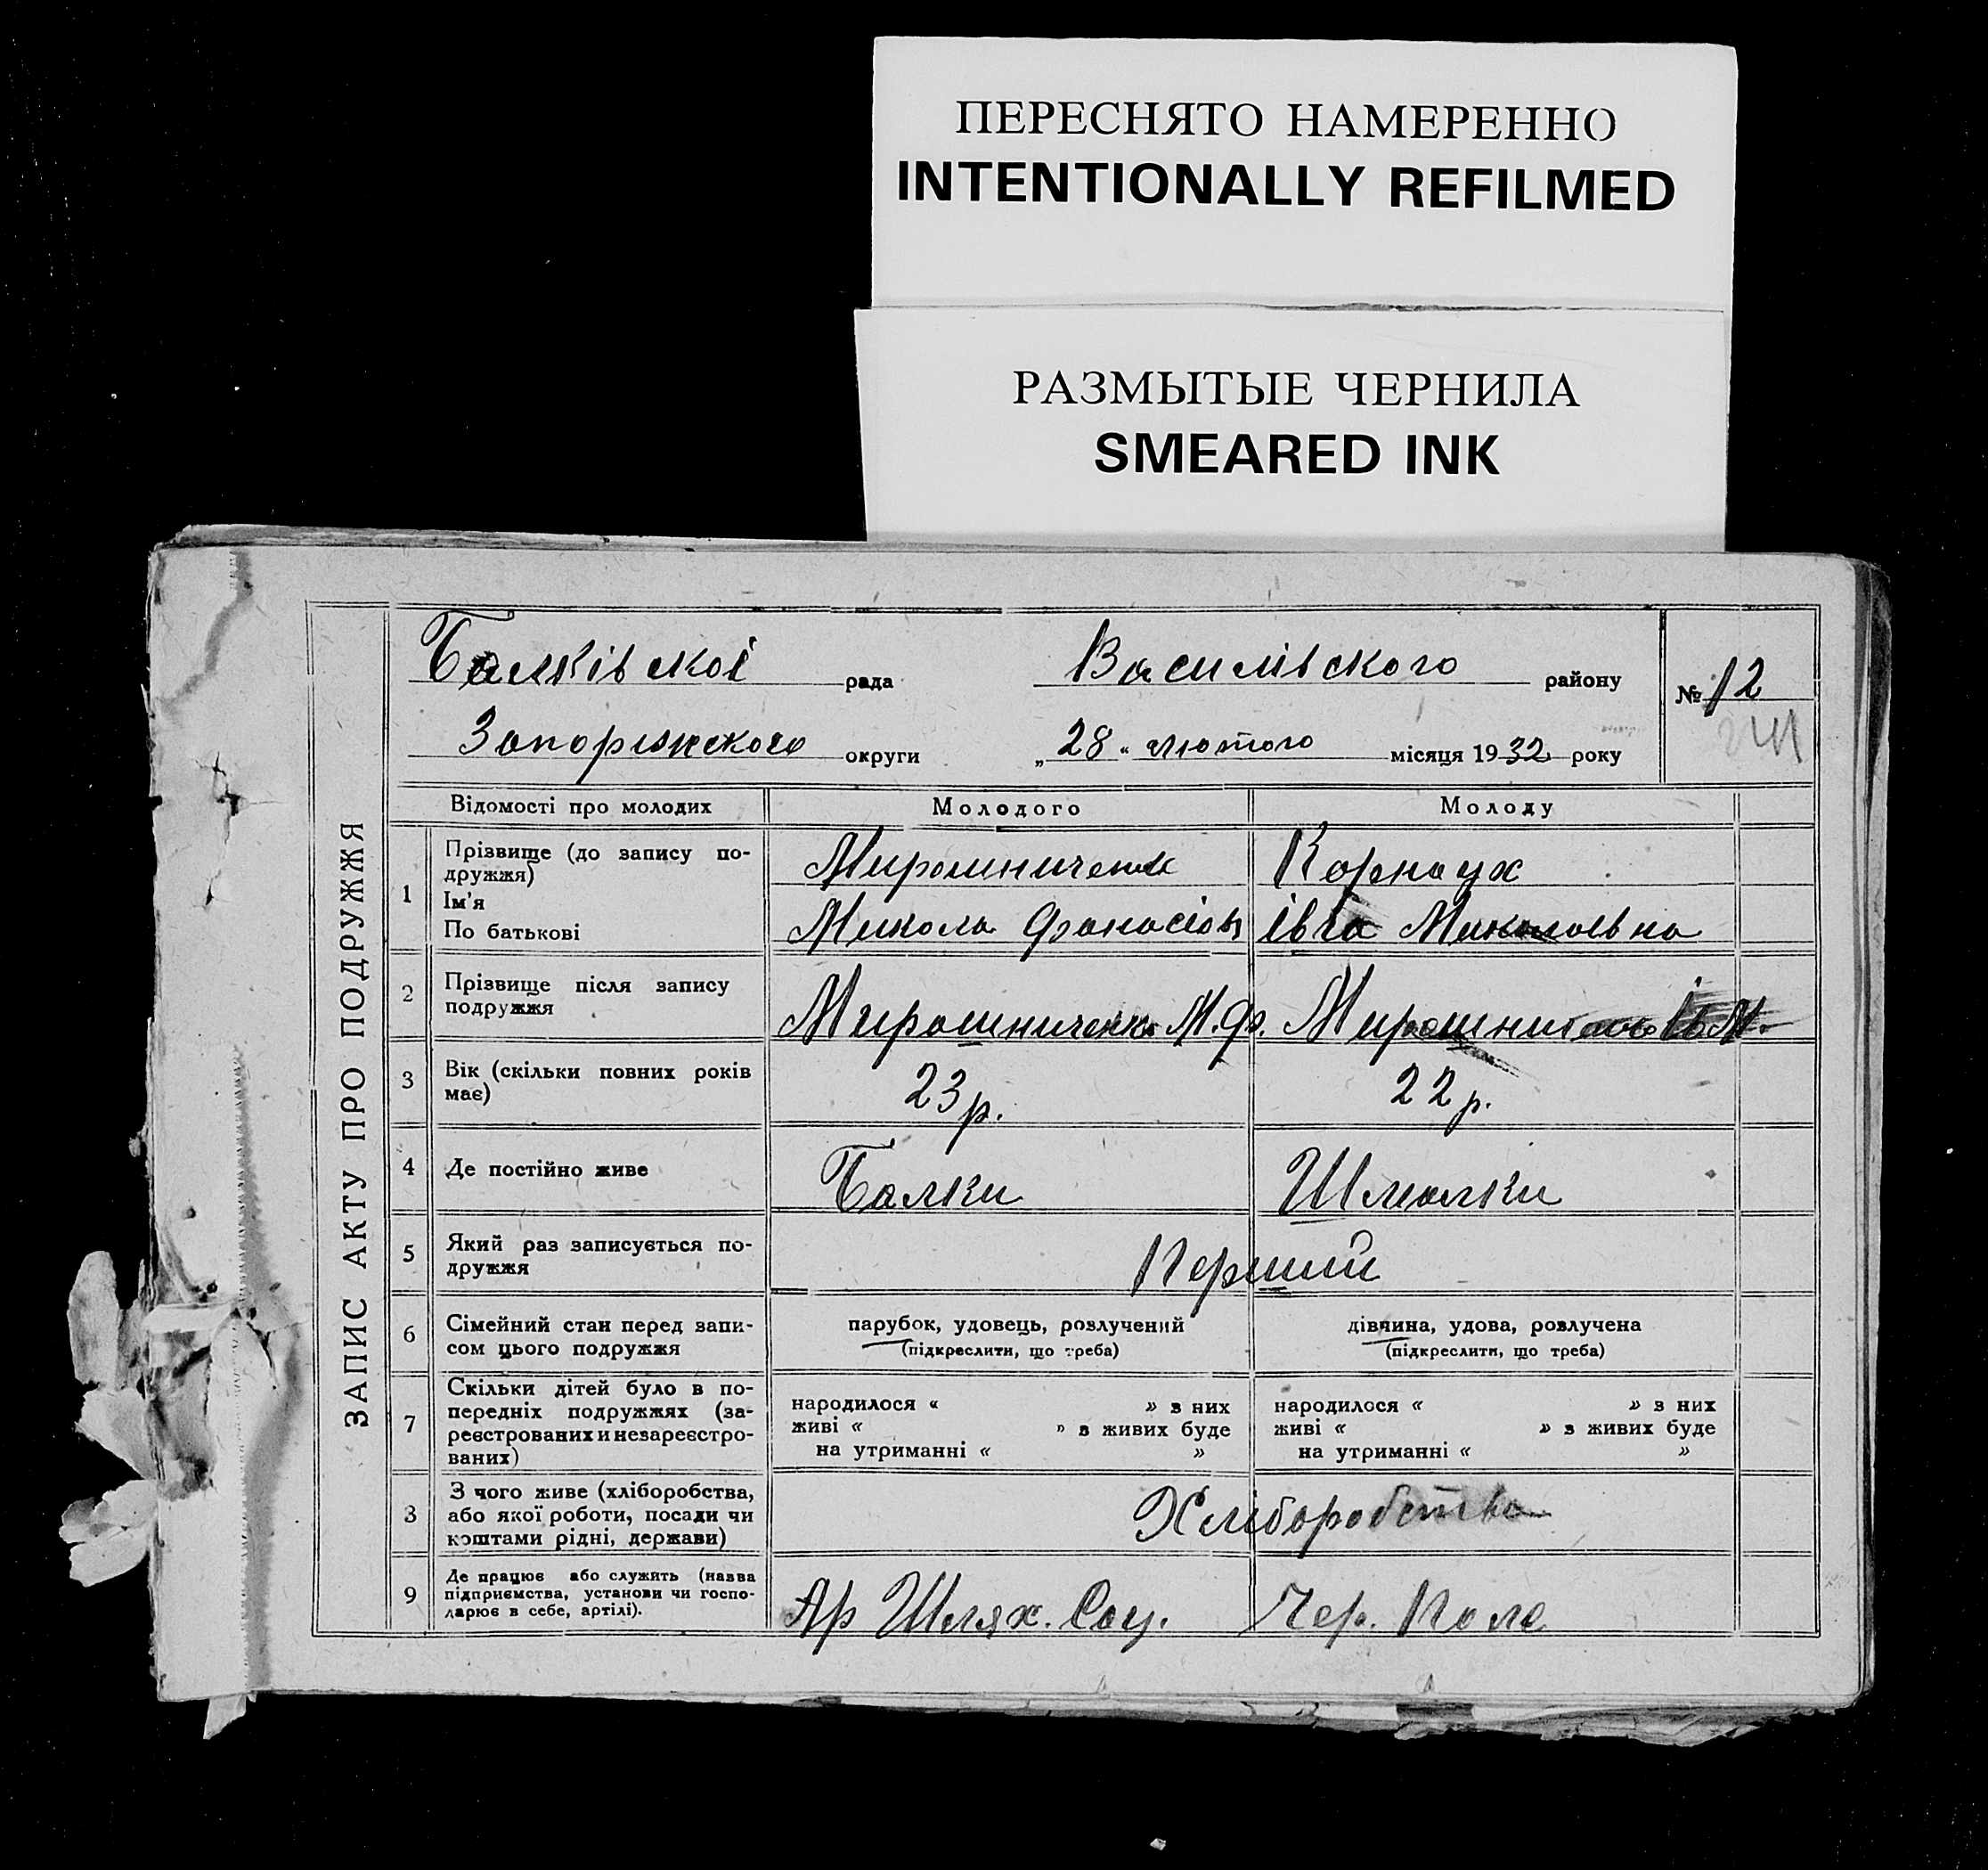 ПЕРЕСНЯТО НАМЕРЕННО
INTENTIONALLY REFILMED
РАЗМЫТЫЕ ЧЕРНИЛА
SMEARED INK
ЗАПИС АКТУ ПРО ПОДРУЖЖЯ
Балківської рада Василівского району № 12
Запоріжского округи „28“ лютого місяця 1932 року
Відомості про молодих Молодого Молоду
1 Прізвище (до запису по-
дружжя) Мирошниченко Корнаух
Ім'я
По батькові Микола Фанасіов Івга Миколаівна
2 Прізвище після запису
подружжя Мирошниченко М.Ф. Мирошниченко І.М.
3 Вік (скільки повних років
має) 23 р. 22 р.
4 Де постійно живе Балки Шмалки
5 Який раз записується по-
дружжя Перший
6 Сімейний стан перед запи-
сом цього подружжя
парубок, удовець, розлучений
(підкреслити, що треба)
дівчина, удова, розлучена
(підкреслити, що треба)
7 Скільки дітей було в по-
передніх подружжях (за-
реєстрованих и незареєстро-
ваних)
народилося « » з них
живі « » з живих буде
на утриманні « »
народилося « » з них
живі « » з живих буде
на утриманні « »
3 З чого живе (хліборобства,
або якої роботи, посади чи
коштами рідні, держави) Хліборобства
9 Де працює або служить (назва
підприємства, установи чи госпо-
дарює в себе, артілі). Ар Шлях. Соц. Чер. Поле